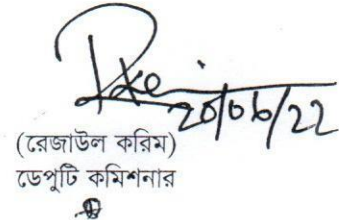 20/06/22
(রেজাউল করিম)
ডেপুটি কমিশনার